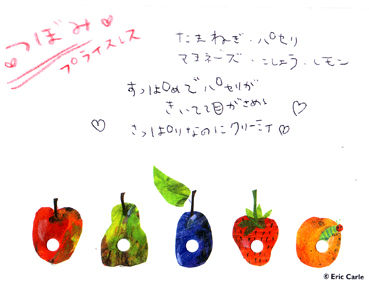 つぼみ
プライスレス
たまねぎ・パセリ
マヨネーズ・こしょう・レモン
すっぱめでパセリが
きいてて目がさめる
さっぱりなのにクリーミィ
© Eric Carle